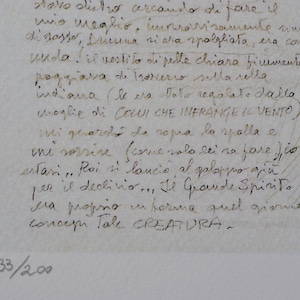 dietro cercando di fare il
mio meglio. improvvisamente
di sasso, si era spogliata, era
nuda: il vestito di pelle chiara finemente
poggiava di traverso sulla sella
indiana (le era stato regalato dalla
moglie di COLUI CHE INFRANGE IL VENTO)
mi guardò da sopra la spalla e
mi sorrise (come solo lei sa fare),
Poi si lanciò al galoppo giù
per il declivio... Il Grande Spirito
era proprio in forma quel giorno
concepì Tale CREATURA.
33/200